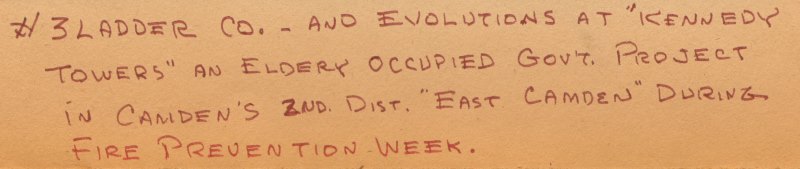 # 3 LADDER CO. - AND EVOLUTIONS AT "KENNEDY
TOWERS" AN ELDERY OCCUPIED GOV'T. PROJECT
IN CAMDEN'S 2ND. DIST. "EAST CAMDEN" DURING
FIRE PREVENTION WEEK.